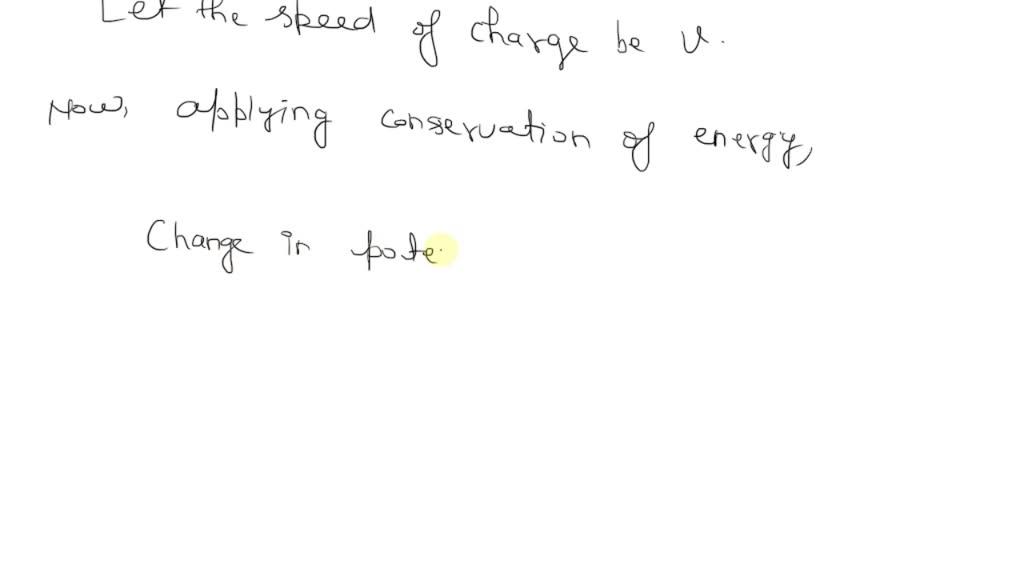 Let the speed of charge be v.
Now, applying conservation of energy,
Change in pote